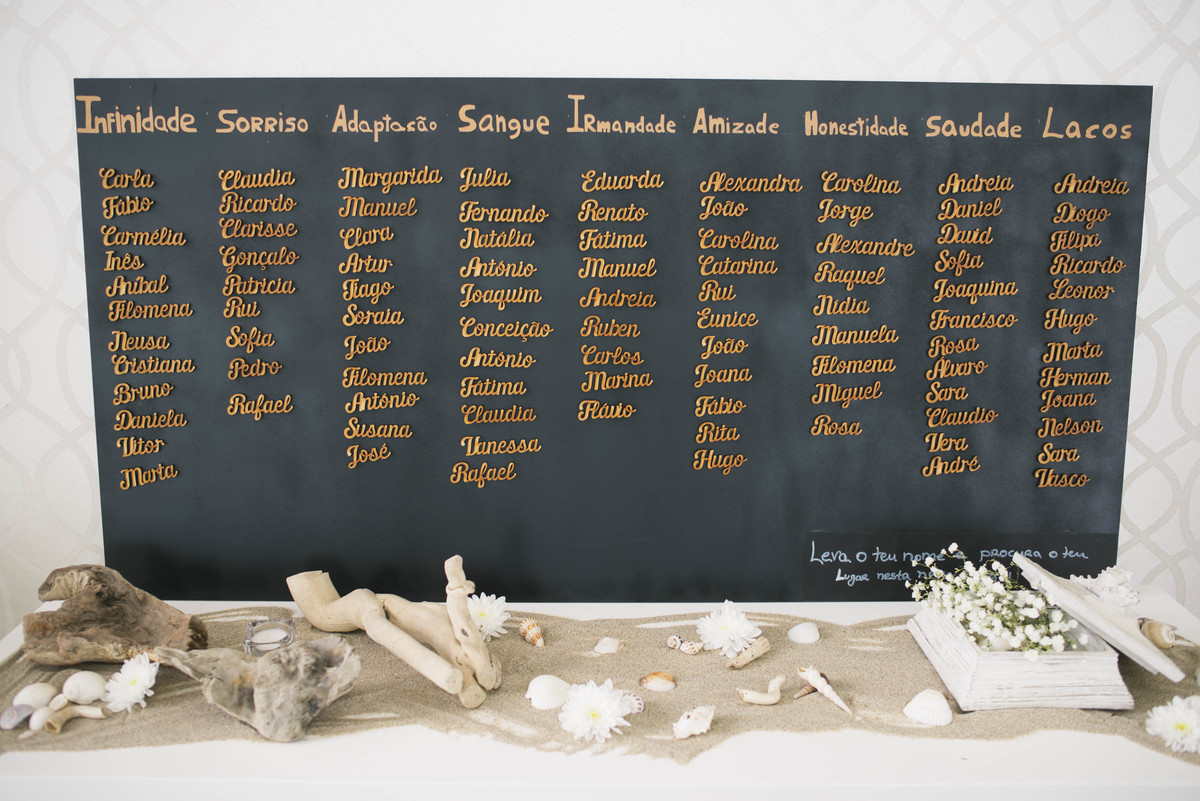 Infinidade
Carla
Fábio
Carmélia
Inês
Aníbal
Filomena
Neusa
Cristiana
Bruno
Daniela
Vitor
Marta
Sorriso
Claudia
Ricardo
Clarisse
Gonçalo
Patricia
Rui
Sofia
Pedro
Rafael
Adaptação
Margarida
Manuel
Clara
Artur
Tiago
Soraia
João
Filomena
António
Susana
José
Sangue
Julia
Fernando
Natália
António
Joaquim
Conceição
António
Fátima
Claudia
Vanessa
Rafael
Irmandade
Eduarda
Renato
Fátima
Manuel
Andreia
Ruben
Carlos
Marina
Flávio
Amizade
Alexandra
João
Carolina
Catarina
Rui
Eunice
João
Joana
Fábio
Rita
Hugo
Honestidade
Carolina
Jorge
Alexandre
Raquel
Nidia
Manuela
Filomena
Miguel
Rosa
Saudade
Andreia
Daniel
David
Sofia
Joaquina
Francisco
Rosa
Alvaro
Sara
Claudio
Vera
André
Lacos
Andreia
Diogo
Filipa
Ricardo
Leonor
Hugo
Marta
Herman
Joana
Nelson
Sara
Vasco
Leva o teu nome e procura o teu
Lugar nesta